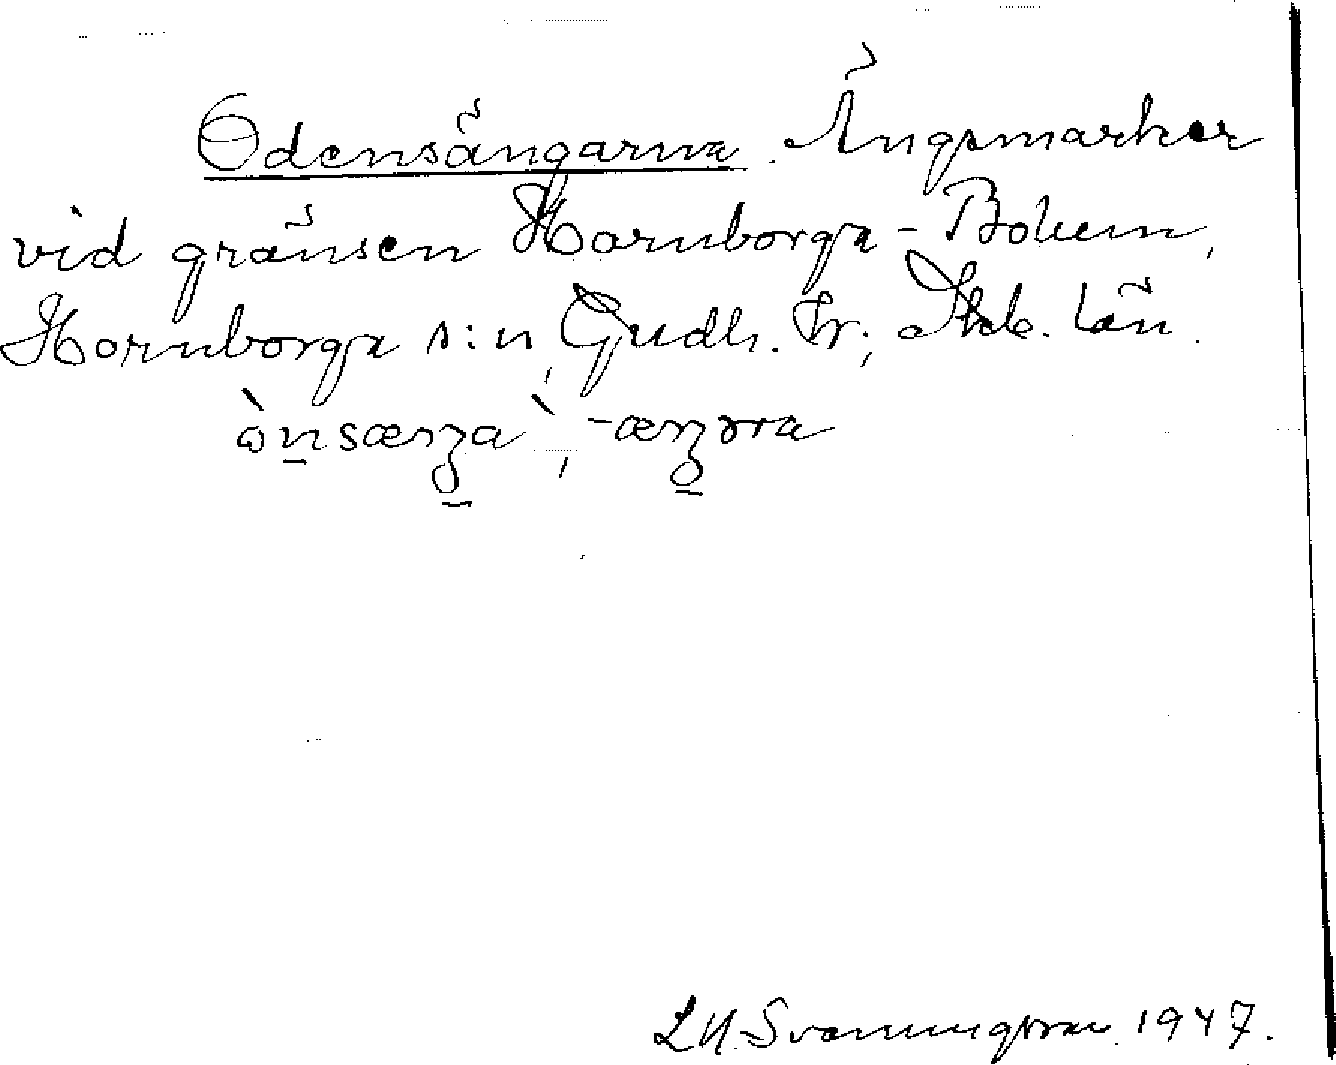 Odensängarna. Ängsmarker
vid gränsen Hornborga-Bolum,
Hornborga s:n, Gudh. hr; Skb. län.
ὼn̲sæŋ̲a`, -æŋ̲ɔra
L.N. Svanungsson 1947.